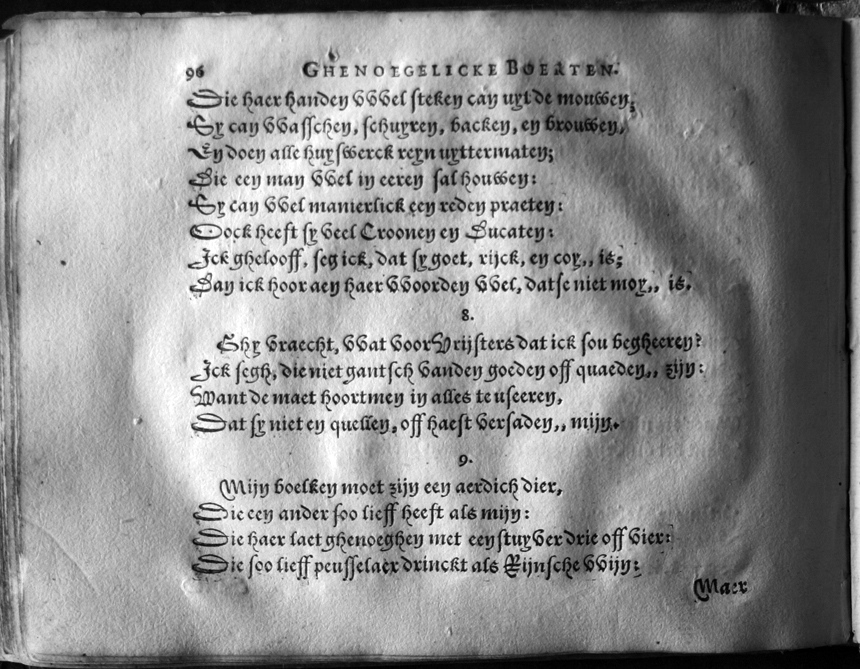 96 GHENOEGELICKE BOERTEN.
Die haer handen VVel steken can uyt de mouwen,
Sy can VVasschen, schuyren, backen, en brouwen,
En doen alle huyswerck reyn uyttermaten;
Die een man VVel in eeren sal houwen:
Sy can VVel manierlick een reden praeten:
Oock heeft sy veel Croonen en Ducaten:
Ick ghelooff, seg ick, dat sy goet, rijck, en coy,, is;
Dan ick hoor aen haer VVoorden VVel, datse niet moy,, is.
8.
Ghy vraecht, VVat voor Vrijsters dat ick sou begheeren?
Ick segh, die niet gantsch vanden goeden off quaeden,, zijn:
Want de maet hoortmen in alles te useeren,
Dat sy niet en quellen, off haest versaden,, mijn.
9.
Mijn boelken moet zijn een aerdich dier,
Die een ander soo lieff heeft als mijn:
Die haer laet ghenoeghen met een stuyver drie off vier:
Die soo lieff peusselaer drinckt als Rijnsche VVijn:
Maer